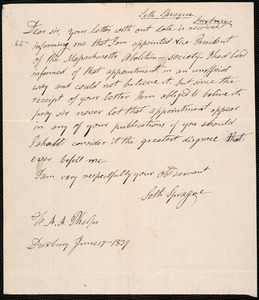 Seth Sprague
Duxbury
Dear sir your letter with out date is received
informing me that I am appointed Vice President
of the Massachusetts Abolition society I had been
informed of that appointment in an unofficial
way and could not believe it, but since the
receipt of your letter I am obliged to believe it,
pray sir never let that appointment appear
in any of your publications if you should
I shall consider it the greatest disgrace that
ever befell me
I am very respectfully your obt servant
Seth Sprague
To A. A. Phelps
Duxbury June 17-1839